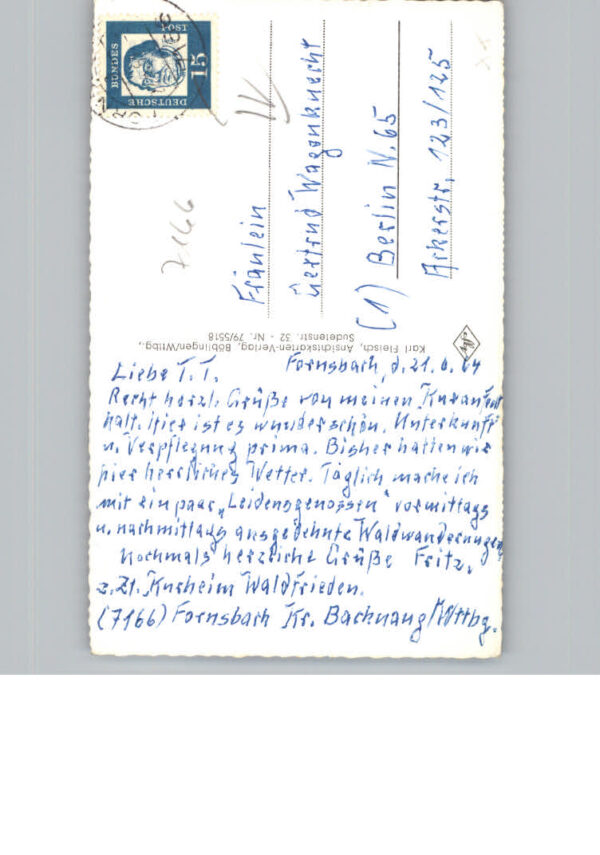 DEUTSCHE
BUNDES
15
7166
Fräulein
Gertrud Wagenknecht
(1) Berlin N.65
Ackerstr. 123/125
Karl Fleisch, Ansichtskarten-Verlag, Böblingen/Wttbg.,
Sudetenstr. 32 - Nr. 79/5518
Fornsbach, d. 21.6.64
Liebe T.T.
Recht herzl. Grüße von meinen Kuraufent
halt. Hier ist es wunderschön. Unterkunft
u. Verpflegung prima. Bisher hatten wir
hier herrliches Wetter. Täglich mache ich
mit ein paar „Leidensgenossen" vormittags
u. nachmittags ausgedehnte Waldwanderungen
Nochmals herzliche Grüße Fritz.
z. Zt. Kurheim Waldfrieden.
(7166) Fornsbach Kr. Backnang/Wttbg.